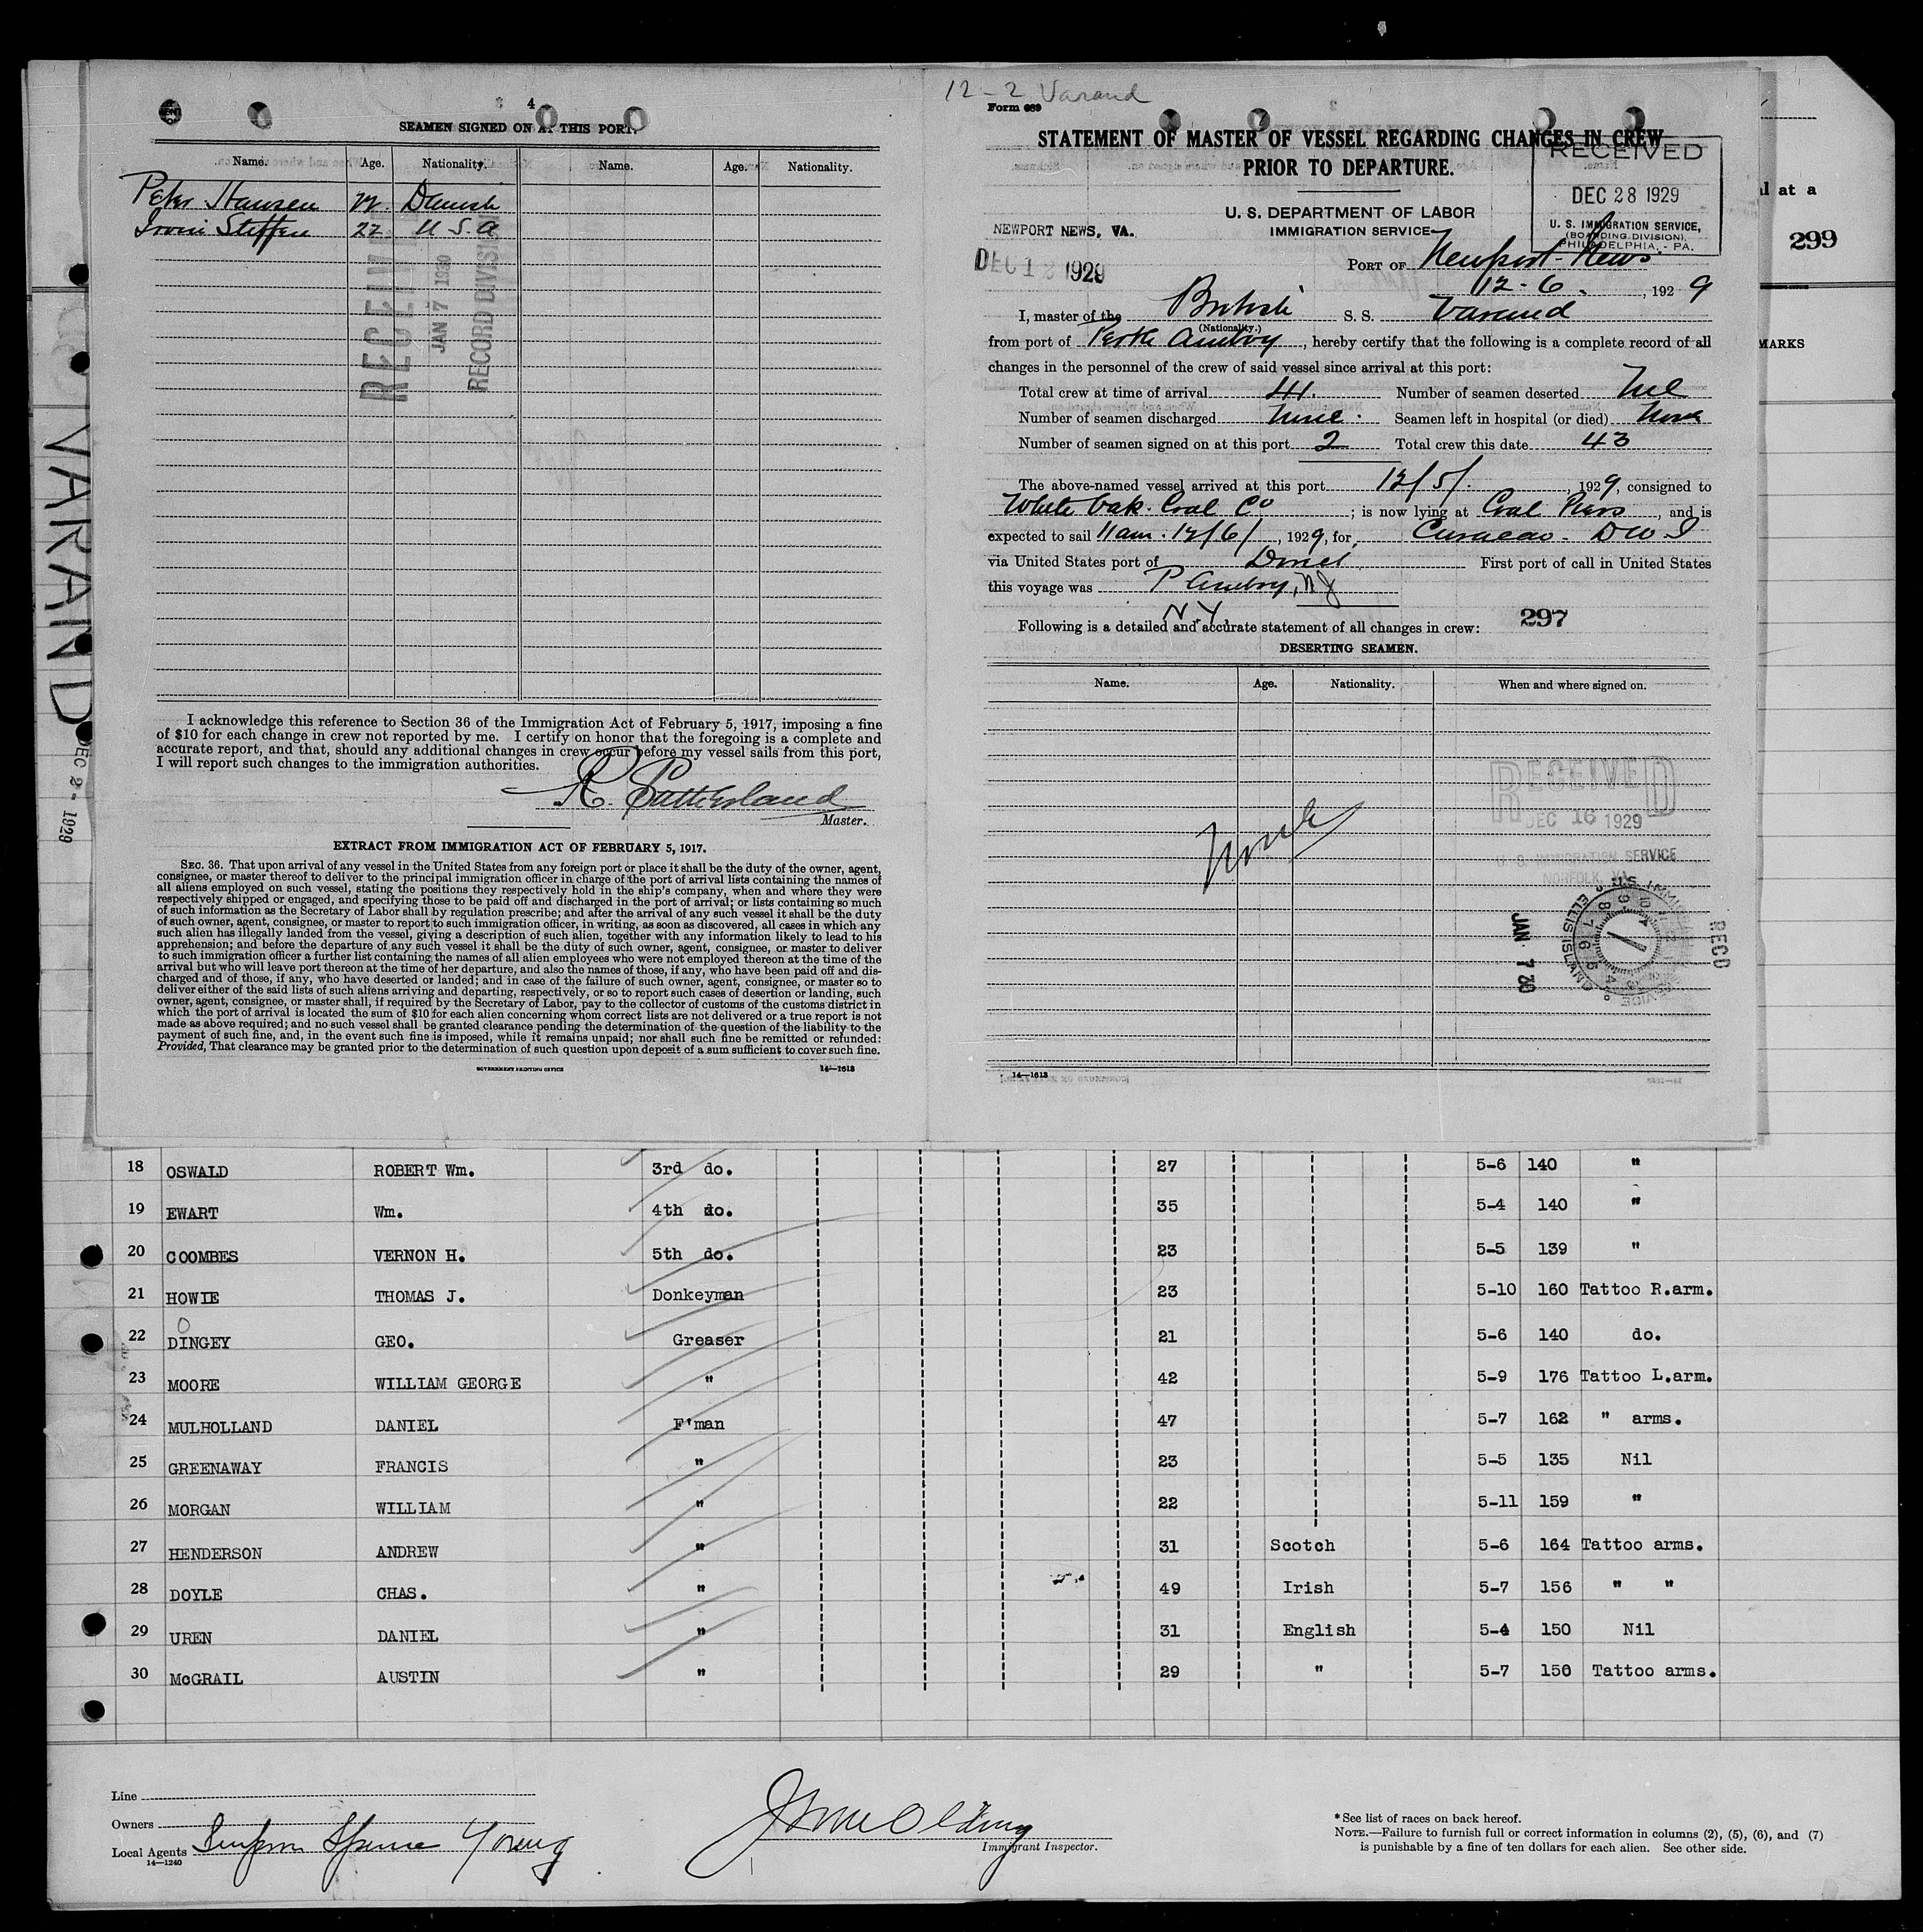 4
SEAMEN SIGNED ON AT THIS PORT.
Name. Age. Nationality. Name. Age. Nationality.
Peter Hansen 22 Danish
Irvin Steffen 22 U S A
RECEIVED
JAN 7 1930
RECORD DIVISION
I acknowledge this reference to Section 36 of the Immigration Act of February 5, 1917, imposing a fine
of $10 for each change in crew not reported by me. I certify on honor that the foregoing is a complete and
accurate report, and that, should any additional changes in crew occur before my vessel sails from this port,
I will report such changes to the immigration authorities.
R. Sutherland
Master.
EXTRACT FROM IMMIGRATION ACT OF FEBRUARY 5, 1917.
SEC. 36. That upon arrival of any vessel in the United States from any foreign port or place it shall be the duty of the owner, agent,
consignee, or master thereof to deliver to the principal immigration officer in charge of the port of arrival lists containing the names of
all aliens employed on such vessel, stating the positions they respectively hold in the ship's company, when and where they were
respectively shipped or engaged, and specifying those to be paid off and discharged in the port of arrival; or lists containing so much
of such information as the Secretary of Labor shall by regulation prescribe; and after the arrival of any such vessel it shall be the duty
of such owner, agent, consignee, or master to report to such immigration officer, in writing, as soon as discovered, all cases in which any
such alien has illegally landed from the vessel, giving a description of such alien, together with any information likely to lead to his
apprehension; and before the departure of any such vessel it shall be the duty of such owner, agent, consignee, or master to deliver
to such immigration officer a further list containing the names of all alien employees who were not employed thereon at the time of the
arrival but who will leave port thereon at the time of her departure, and also the names of those, if any, who have been paid off and dis-
charged and of those, if any, who have deserted or landed; and in case of the failure of such owner, agent, consignee, or master so to
deliver either of the said lists of such aliens arriving and departing, respectively, or so to report such cases of desertion or landing, such
owner, agent, consignee, or master shall, if required by the Secretary of Labor, pay to the collector of customs of the customs district in
which the port of arrival is located the sum of $10 for each alien concerning whom correct lists are not delivered or a true report is not
made as above required; and no such vessel shall be granted clearance pending the determination of the question of the liability to the
payment of such fine, and, in the event such fine is imposed, while it remains unpaid; nor shall such fine be remitted or refunded:
Provided, That clearance may be granted prior to the determination of such question upon deposit of a sum sufficient to cover such fine.
GOVERNMENT PRINTING OFFICE 14—1613
VARAND
DEC 2- 1929
12-2 Varand
Form 689
STATEMENT OF MASTER OF VESSEL REGARDING CHANGES IN CREW
PRIOR TO DEPARTURE.
RECEIVED
DEC 28 1929
U. S. IMMIGRATION SERVICE,
(BOARDING DIVISION),
PHILADELPHIA, PA.
U. S. DEPARTMENT OF LABOR
IMMIGRATION SERVICE
NEWPORT NEWS, VA.
DEC 12 1929
PORT OF Newport News
12-6, 1929
I, master of the British S. S. Varand
(Nationality.)
from port of Perth Amboy, hereby certify that the following is a complete record of all
changes in the personnel of the crew of said vessel since arrival at this port:
Total crew at time of arrival 41. Number of seamen deserted Nil
Number of seamen discharged None. Seamen left in hospital (or died) None
Number of seamen signed on at this port 2 Total crew this date 43
The above-named vessel arrived at this port 12/5/, 1929, consigned to
White Oak Coal Co; is now lying at Coal Piers, and is
expected to sail 11am. 12/6/, 1929, for Curacao - D W I
via United States port of Direct First port of call in United States
this voyage was P Amboy, NJ
N.Y.
297
Following is a detailed and accurate statement of all changes in crew:
DESERTING SEAMEN.
Name. Age. Nationality. When and where signed on.
None
RECEIVED
DEC 16 1929
U. S. IMMIGRATION SERVICE
NORFOLK, VA.
U.S. IMMIGRATION SERVICE ELLIS ISLAND
JAN 7 30
RECD
14—1613
l at a
299
MARKS
18 OSWALD ROBERT Wm. 3rd do. 27 5-6 140 "
19 EWART Wm. 4th do. 35 5-4 140 "
20 COOMBES VERNON H. 5th do. 23 5-5 139 "
21 HOWIE THOMAS J. Donkeyman 23 5-10 160 Tattoo R.arm.
22 DINGEY GEO. Greaser 21 5-6 140 do.
23 MOORE WILLIAM GEORGE " 42 5-9 176 Tattoo L.arm.
24 MULHOLLAND DANIEL F'man 47 5-7 162 " arms.
25 GREENAWAY FRANCIS " 23 5-5 135 Nil
26 MORGAN WILLIAM " 22 5-11 159 "
27 HENDERSON ANDREW " 31 Scotch 5-6 164 Tattoo arms.
28 DOYLE CHAS. " 49 Irish 5-7 156 " "
29 UREN DANIEL " 31 English 5-4 150 Nil
30 McGRAIL AUSTIN " 29 " 5-7 150 Tattoo arms.
Line
Owners
Local Agents Simpson Spence Young
14—1240
Immigrant Inspector.
* See list of races on back hereof.
NOTE.—Failure to furnish full or correct information in columns (2), (5), (6), and (7)
is punishable by a fine of ten dollars for each alien. See other side.